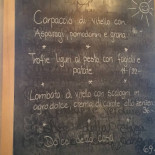 Carpaccio di vitello con
Asparagi, pomodorini e grana
Trofie liguri al pesto con fagiolini e
patate
Lombata di vitello con scalogni in
agrodolce, crema di carote allo zenzero
Dolce della casa